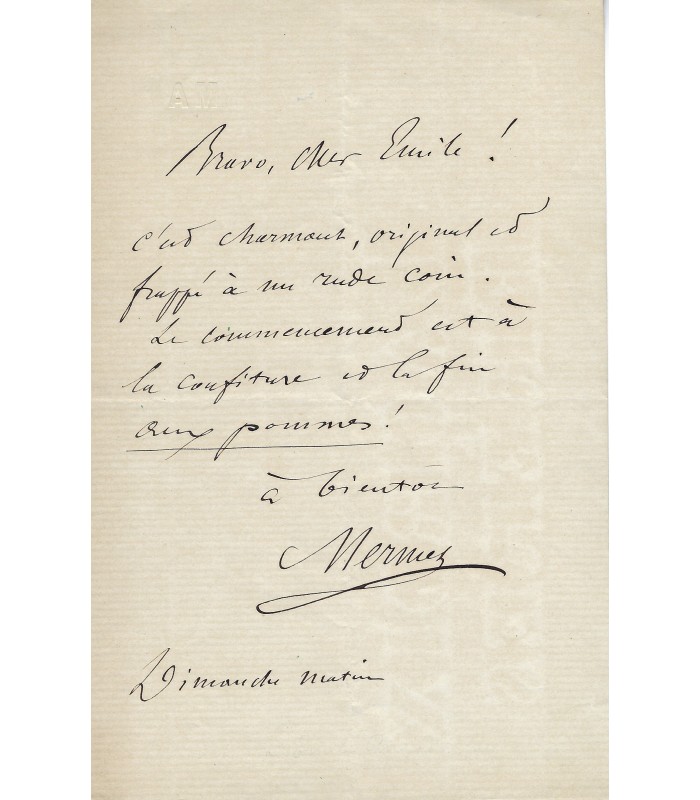 Bravo, cher Emile !
c'est charmant, original et
frappé à un rude coin.
Le commencement est à
la confiture et la fin
aux pommes !
à bientôt
Mermet
Dimanche matin